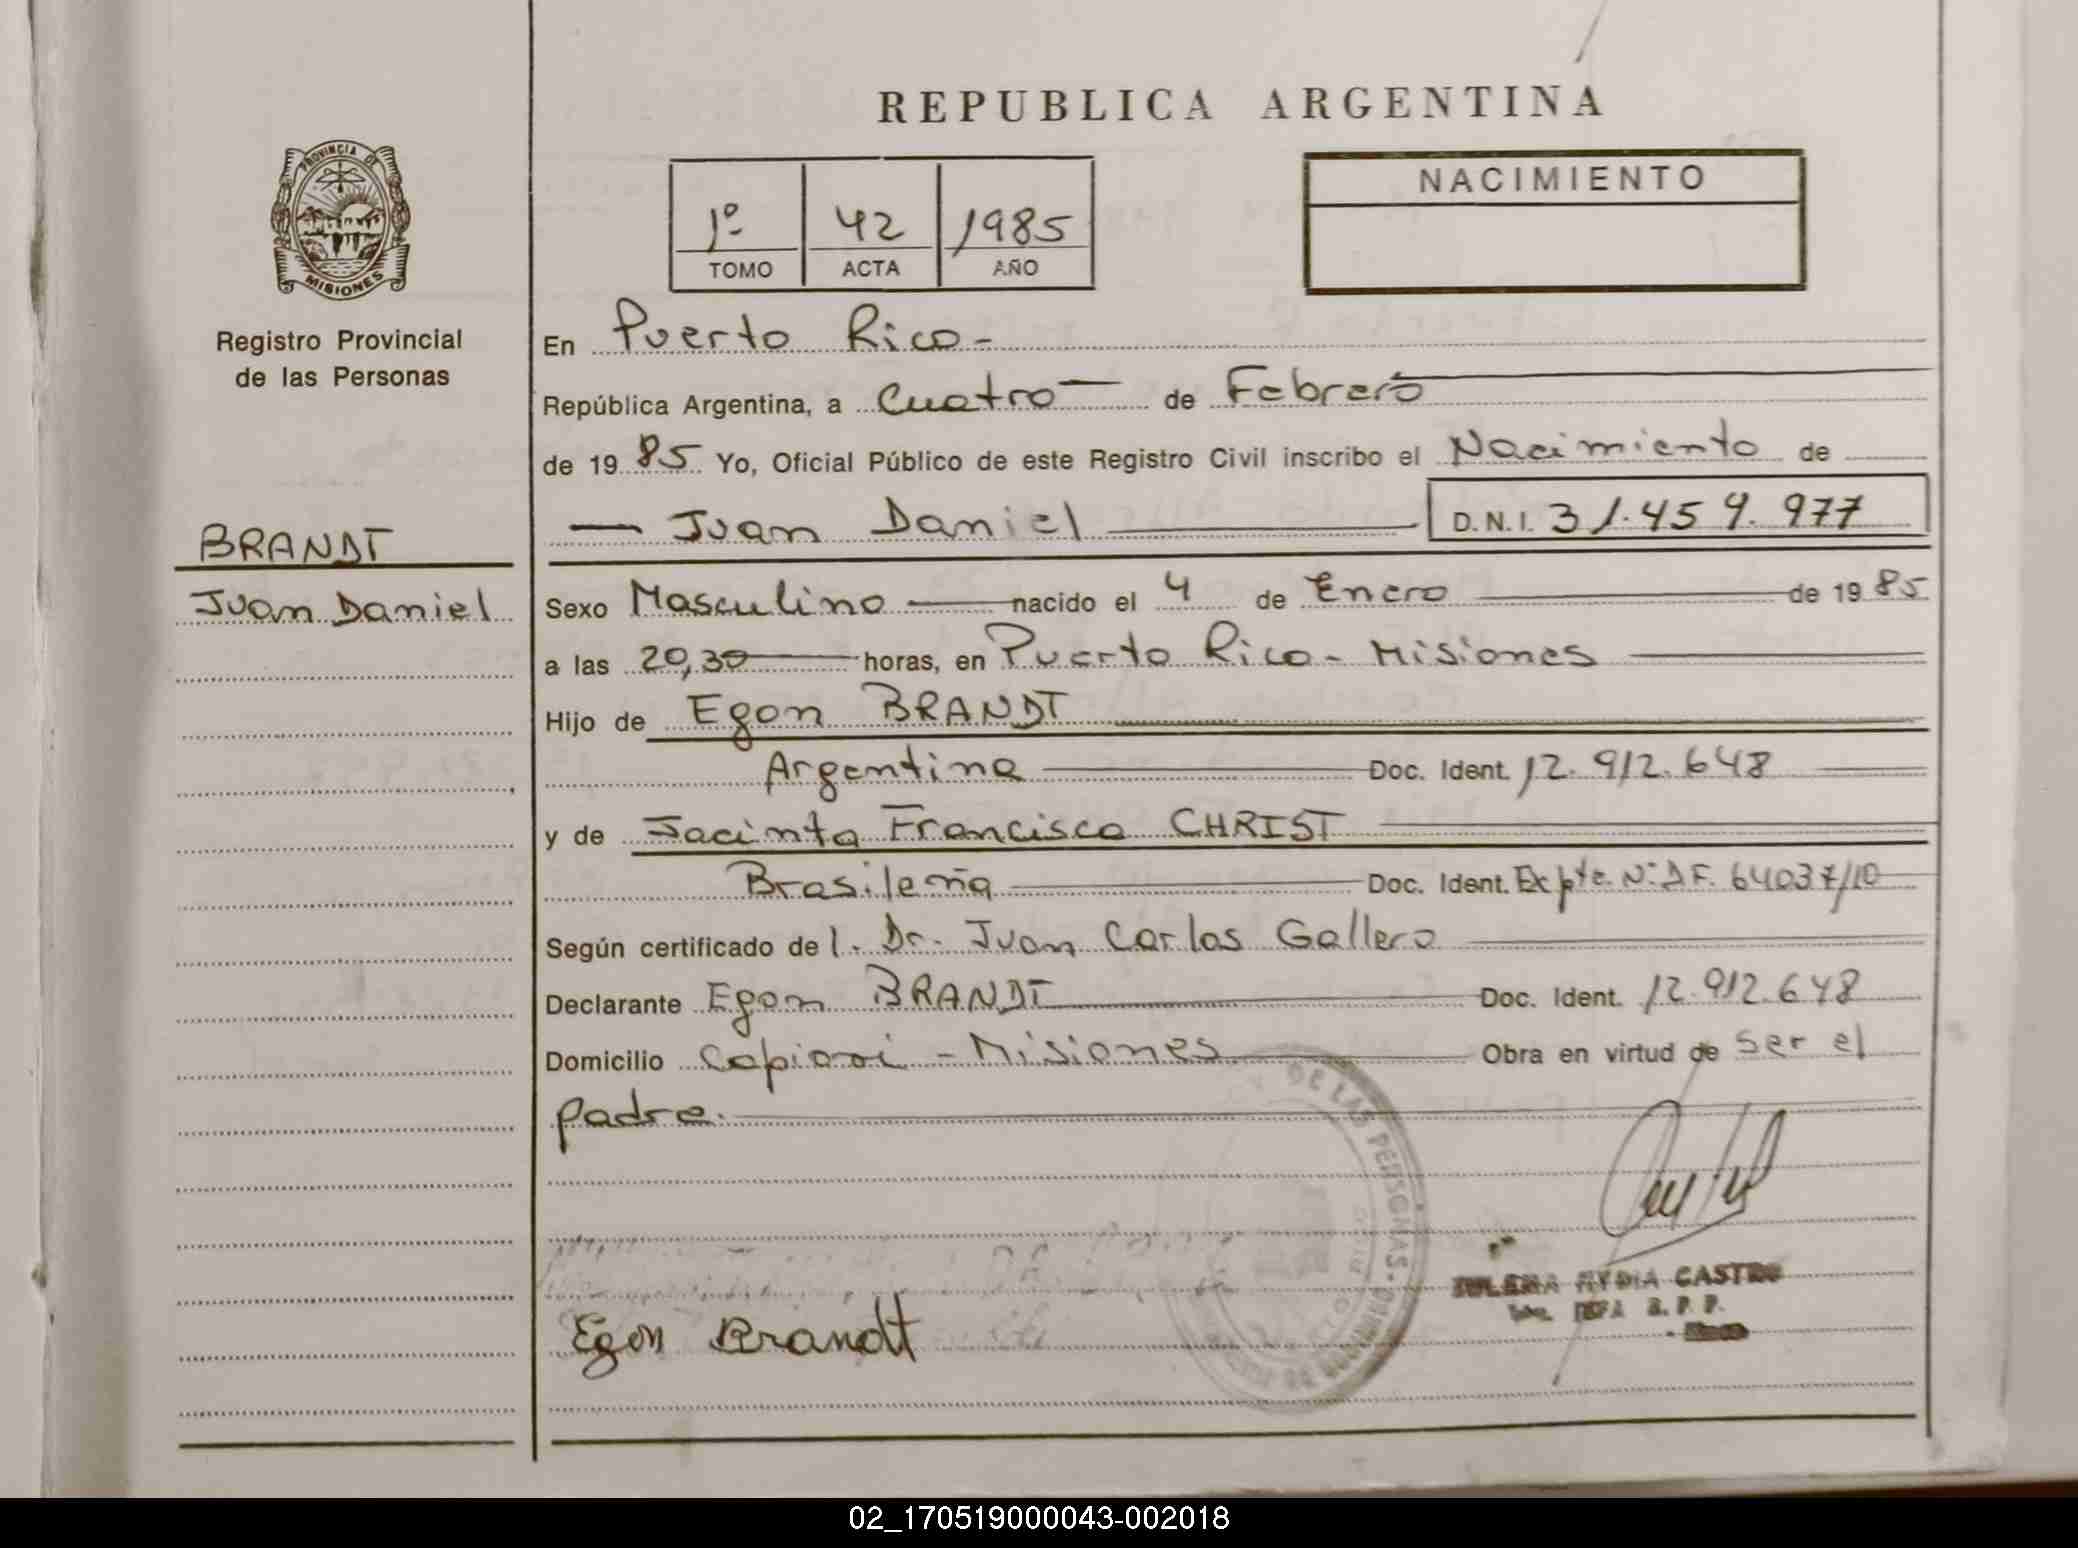 REPUBLICA ARGENTINA
PROVINCIA DE
MISIONES
Registro Provincial
de las Personas
BRANDT
Juan Daniel
1º 42 1985
TOMO ACTA AÑO
NACIMIENTO
En Puerto Rico -
República Argentina, a cuatro de Febrero
de 1985 Yo, Oficial Público de este Registro Civil inscribo el Nacimiento de
Juan Daniel D.N.I. 31.459.977
Sexo Masculino nacido el 4 de Enero de 1985
a las 20,30 horas, en Puerto Rico - Misiones
Hijo de Egon BRANDT
Argentina Doc. Ident. 12.912.648
y de Jacinta Francisca CHRIST
Brasileña Doc. Ident. Expte. Nº DF. 64037/10
Según certificado del. Dr. Juan Carlos Gallero
Declarante Egon BRANDT Doc. Ident. 12.912.648
Domicilio Capioví - Misiones Obra en virtud de ser el
padre.
DE LAS PERSONAS
CASTRO
Egon Brandt
02_170519000043-002018